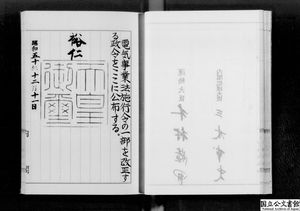 電気事業法施行令の一部を改正す
る政令をここに公布する。
裕仁
天皇
御璽
昭和五十年十二月十一日
内閣総理大臣 三木武夫
国立公文書館
National Archives of Japan